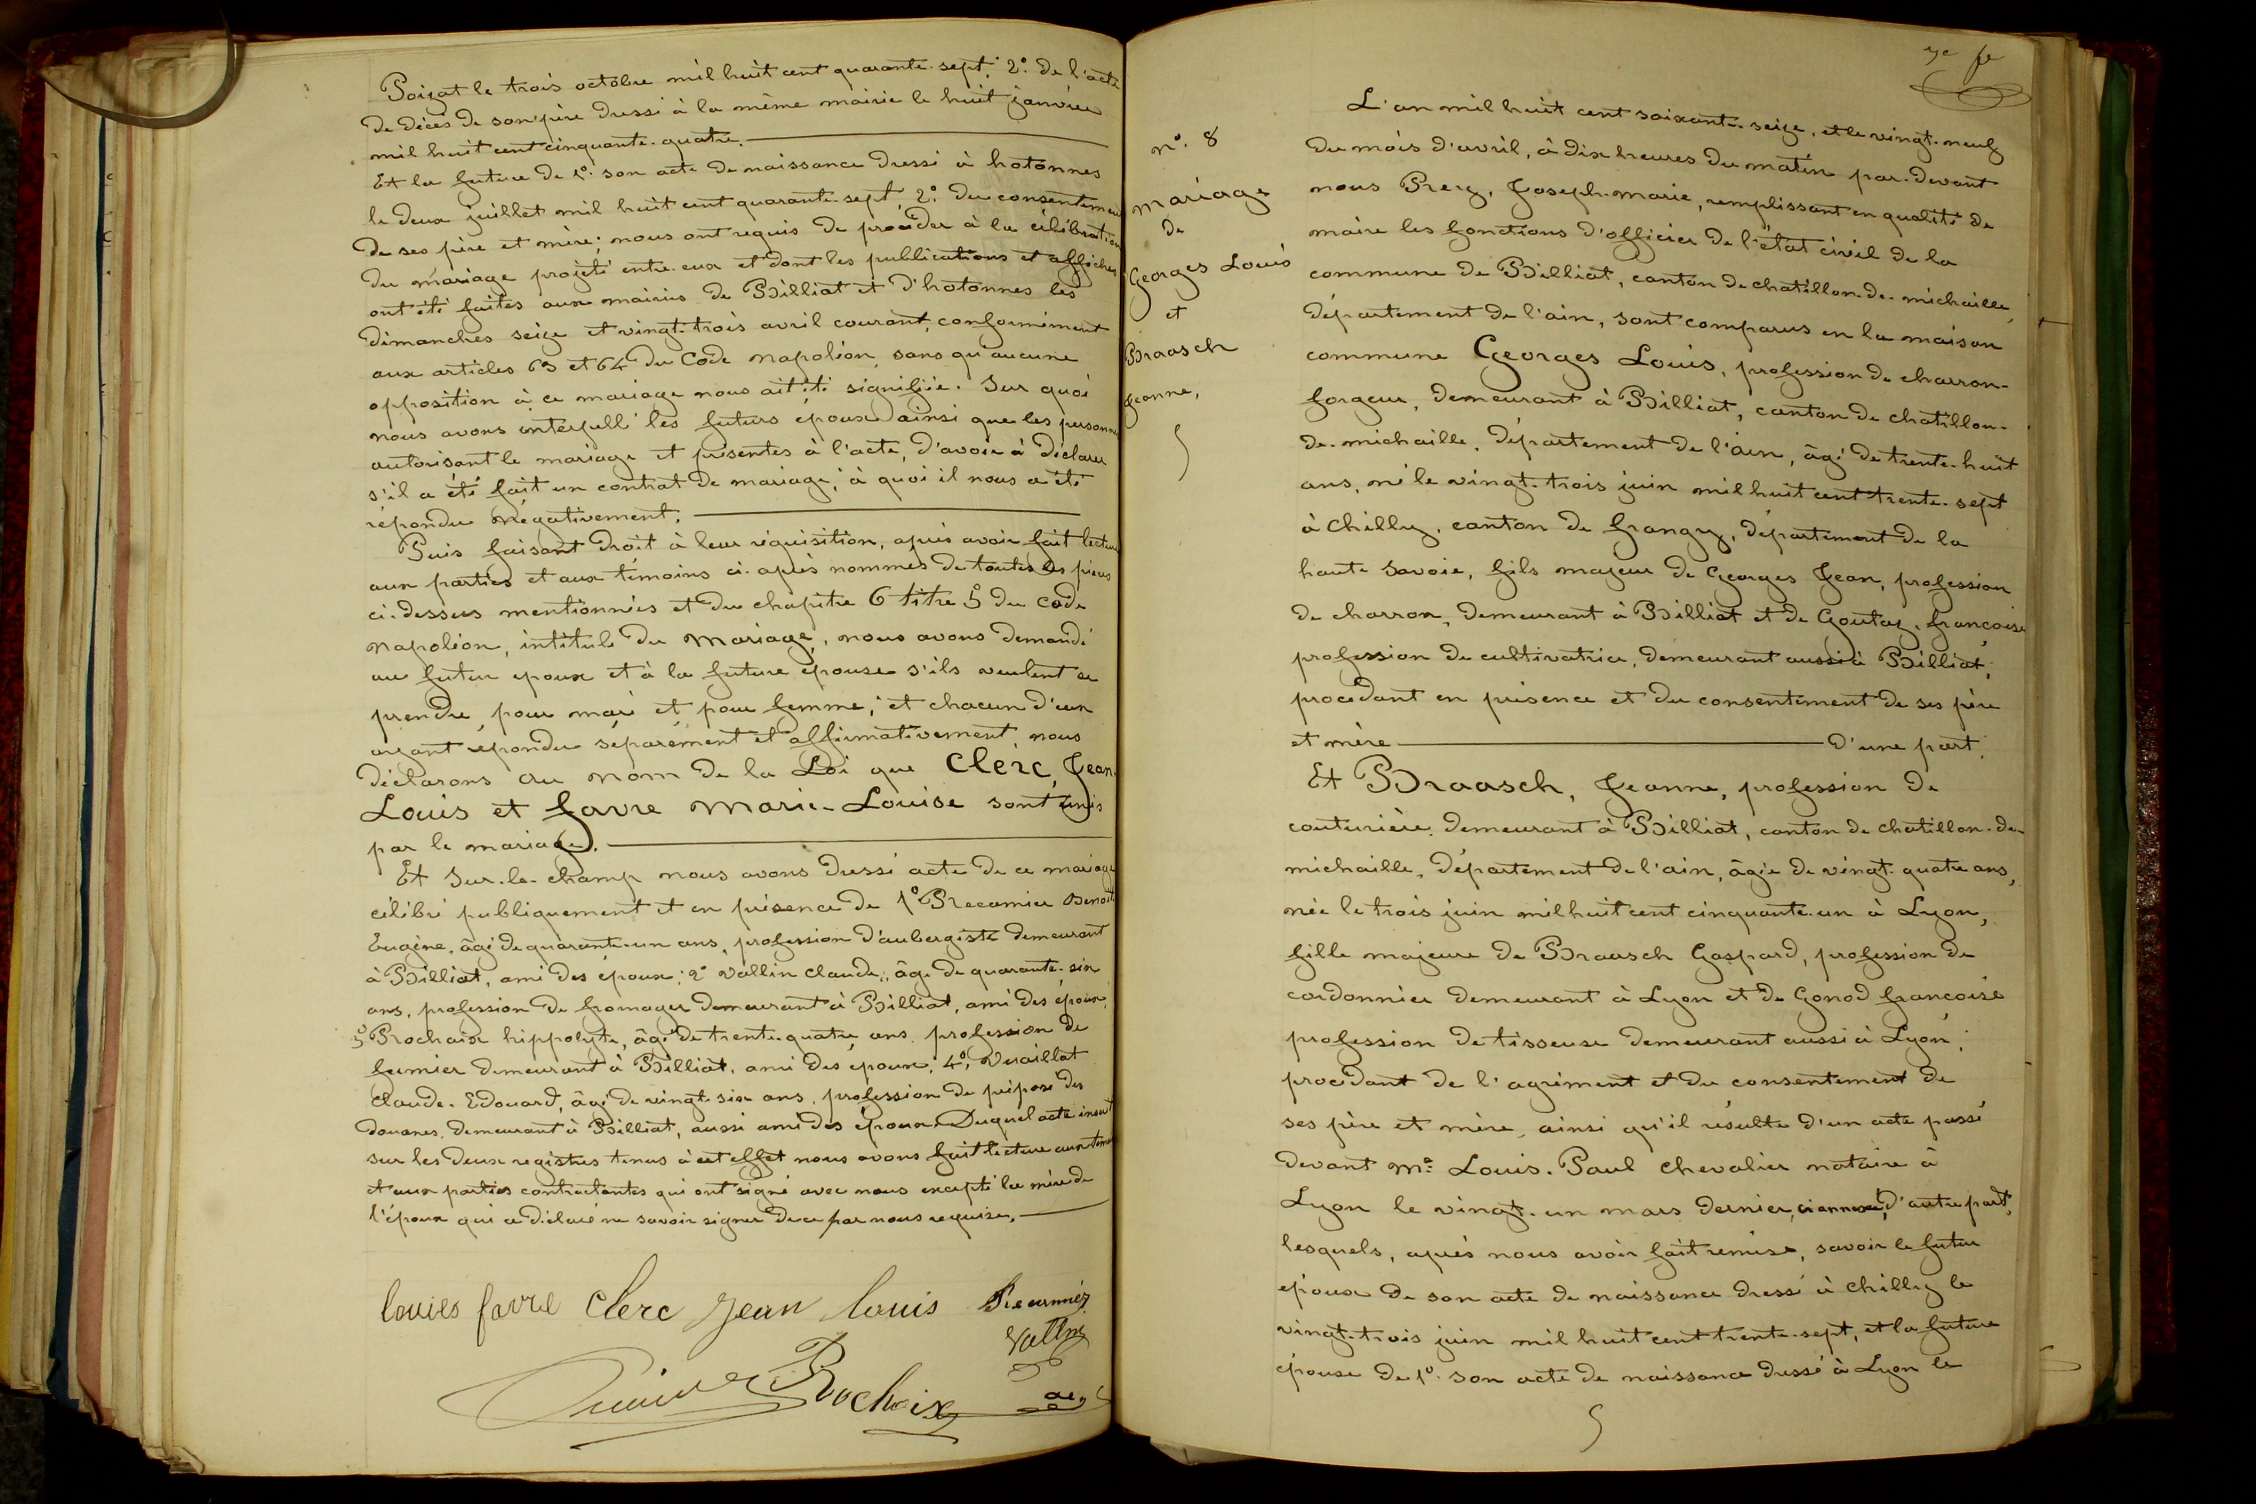 Poizat le trois octobre mil huit cent quarante-sept; 2º. de l'acte
de décès de son père dressé à la même mairie le huit janvier
mil huit cent cinquante-quatre.
Et la future de 1º. son acte de naissance dressé à hotonnes
le deux juillet mil huit cent quarante-sept, 2º. du consentement
de ses père et mère; nous ont requis de procéder à la célébration
du mariage projeté entre eux et dont les publications et affiches
ont été faites aux mairies de Billiat et d'hotonnes les
dimanches seize et vingt-trois avril courant, conformément
aux articles 63 et 64 du Code napoléon, sans qu'aucune
opposition à ce mariage nous ait été signifiée. Sur quoi
nous avons interpellé les futurs époux ainsi que les personnes
autorisant le mariage et présentes à l'acte, d'avoir à déclarer
s'il a été fait un contrat de mariage, à quoi il nous a été
répondu négativement.
Puis faisant droit à leur réquisition, après avoir fait lecture
aux parties et aux témoins ci-après nommés de toutes les pièces
ci-dessus mentionnées et du chapitre 6 titre 5º du code
napoléon, intitulé du Mariage, nous avons demandé
au futur epoux et à la future épouse s'ils veulent se
prendre pour mari et pour femme; et chacun d'eux
ayant répondu séparément et affirmativement, nous
déclarons au nom de la Loi que Clerc, Jean-
Louis et favre Marie-Louise sont unis
par le mariage.
Et sur-le-champ nous avons dressé acte de ce mariage
célébré publiquement et en présence de 1º Recamier Benoit
Eugène, âgé de quarante-un ans, profession d'aubergiste demeurant
à Billiat, ami des époux; 2º Vallin claude, âgé de quarante-six
ans, profession de fromager demeurant à Billiat, ami des époux,
3º Rochaix hippolyte, âgé de trente-quatre ans, profession de
fermier demeurant à Billiat, ami des époux, 4º,
claude-Edouard, âgé de vingt-six ans, profession de préposé des
douanes, demeurant à Billiat, aussi ami des époux. Duquel acte inscrit
sur les deux registres tenus à cet effet nous avons fait lecture aux témoins
et aux parties contractantes qui ont signé avec nous excepté la mère de
l'époux qui a déclaré ne savoir signer de ce par nous requise.
louies favre Clerc Jean louis Recamier
Vallin
Rochaix
nº. 8
mariage
de
Georges Louis
et
Braasch
Jeanne,
L'an mil huit cent soixante-seize, et le vingt-neuf
du mois d'avril, à dix heures du matin par-devant
nous Joseph-marie, remplissant en qualité de
maire les fonctions d'officier de l'état civil de la
commune de Billiat, canton de chatillon-de-michaille,
département de l'ain, sont comparus en la maison
commune Georges Louis, profession de charron-
forgeur, demeurant à Billiat, canton de chatillon-
de-michaille, département de l'ain, âgé de trente-huit
ans, né le vingt-trois juin mil huit cent trente-sept
à Chilly, canton de frangy, département de la
haute Savoie, fils majeur de Georges Jean, profession
de charron, demeurant à Billiat et de Goutaz françoise
profession de cultivatrice, demeurant aussi à Billiat,
procédant en présence et du consentement de ses père
et mère d'une part.
Et Braasch, Jeanne, profession de
couturière, demeurant à Billiat, canton de chatillon-de-
michaille, département de l'ain, âgée de vingt-quatre ans,
née le trois juin mil huit cent cinquante-un à Lyon,
fille majeure de Braasch Gaspard, profession de
cordonnier demeurant à Lyon et de Gonod françoise
profession de tisseuse demeurant aussi à Lyon;
procédant de l'agrément et du consentement de
ses père et mère, ainsi qu'il résulte d'un acte passé
devant Me Louis-Paul chevalier notaire à
Lyon le vingt-un mars dernier, ci annexé, d'autre part,
lesquels, après nous avoir fait remise, savoir le futur
epoux de son acte de naissance dressé à Chilly le
vingt-trois juin mil huit cent trente-sept, et la future
épouse de 1º. son acte de naissance dressé à Lyon le